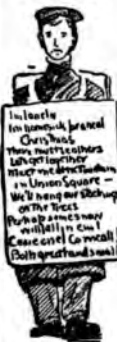 I'm lonely
I'm homesick
Christmas
There must be others
Let's get together
Meet me
in Union Square —
We'll hang our stockings
on the Trees
Perhaps some snow
will fall in
Come one! Come all!
Both great and small